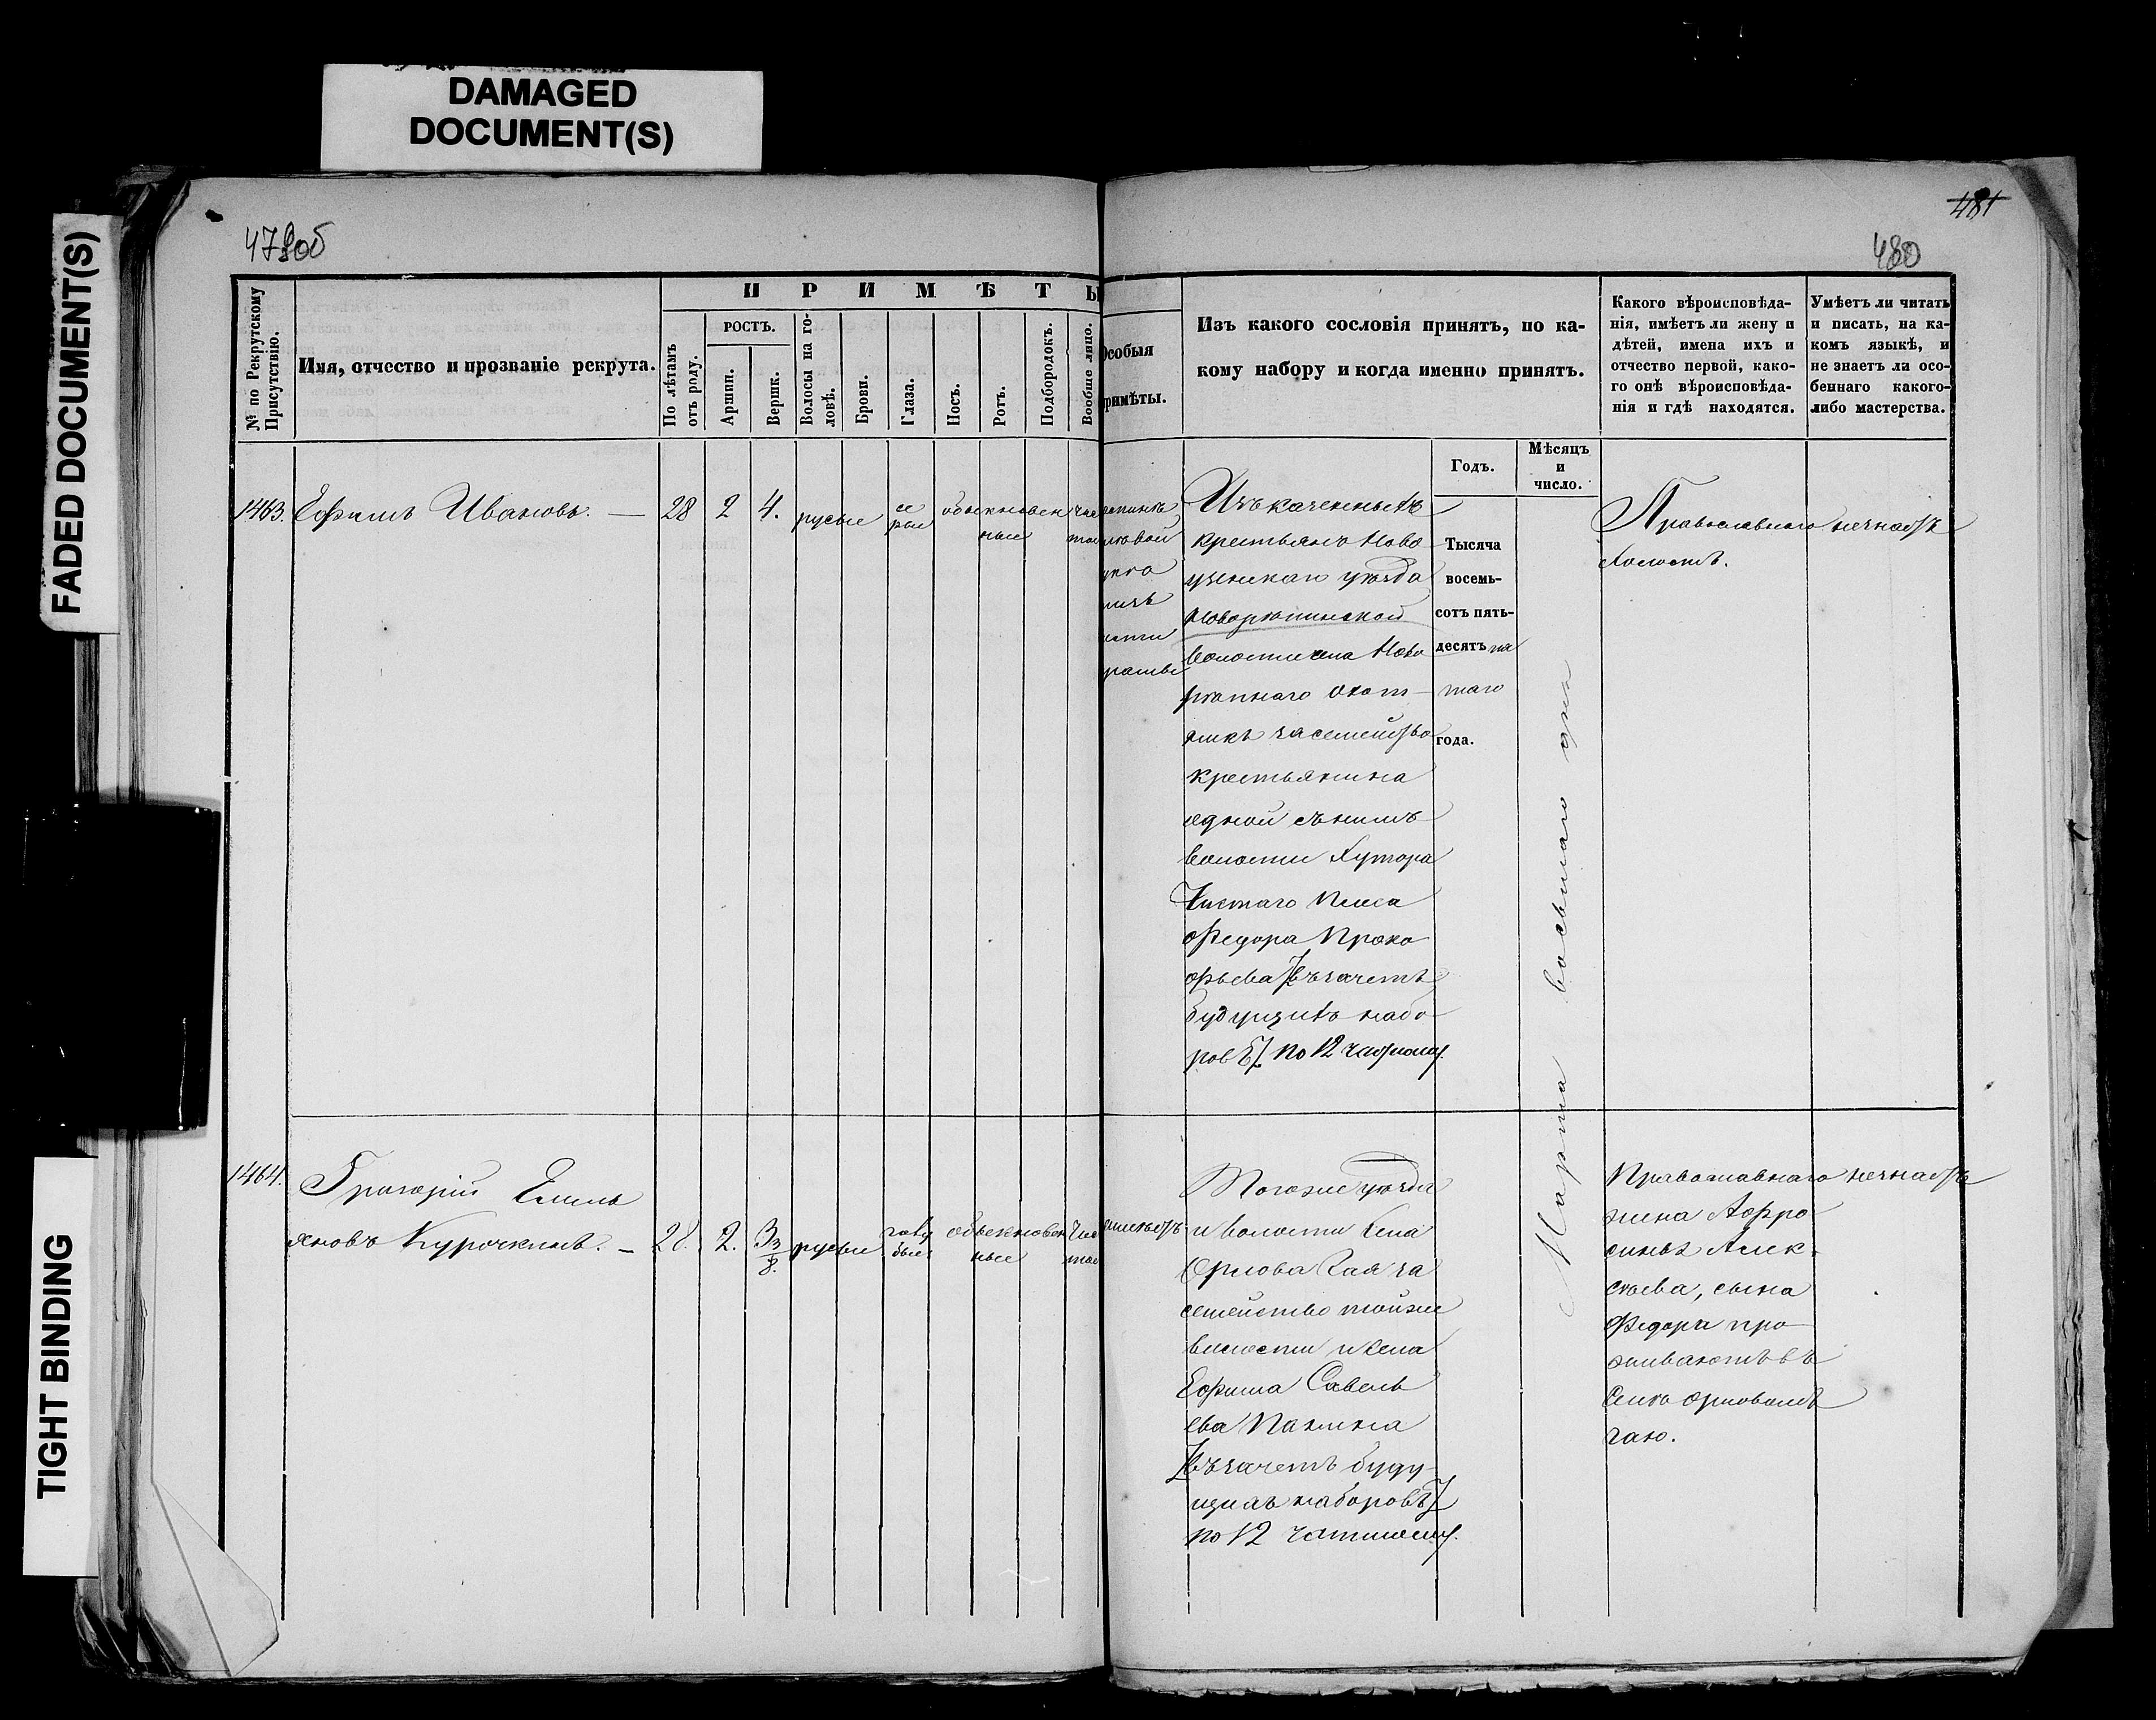 DAMAGED
DOCUMENT(S)
FADED DOCUMENT(S)
TIGHT BINDING
479об
481
480
№ по Рекрутскому Присутствію.
Имя, отчество и прозваніе рекрута.
ПРИМѢТЫ
По лѣтамъ отъ роду.
РОСТЪ.
Аршин.
Вершк.
Волосы на головѣ.
Брови.
Глаза.
Носъ.
Ротъ.
Подбородокъ.
Вообще лицо.
Особыя
римѣты.
Изъ какого сословія принятъ, по ка-
кому набору и когда именно принятъ.
Годъ.
Мѣсяцъ
и
число.
Какого вѣроисповѣда-
нія, имѣетъ ли жену и
дѣтей, имена ихъ и
отчество первой, како-
го онѣ вѣроисповѣда-
нія и гдѣ находятся.
Умѣетъ ли читать
и писать, на ка-
комъ языкѣ, и
не знаетъ ли осо-
беннаго какого-
либо мастерства.
1463. Ефимъ Ивановъ. — 28 2 4. русые се
рые обыкновен
ные чис
тое
Изъ казенныхъ
крестьянъ Ново
узенскаго уѣзда
Новорѣпинской
волости села Ново
рѣпнаго охот-
никъ за семейство
крестьянина
одной съ нимъ
волости Хутора
Чистаго Плеса
Федора Проко
фьева [въ зачетъ
будущихъ набо-
ровъ] по 12 частному.
Тысяча
восемь-
сотъ пять-
десятъ пя
таго
года.
Марта восьмаго дня
Православнаго
холостъ.
незнаетъ
1464. Григорій Емель
яновъ Курочкинъ. — 28. 2. 3 3/8. русые голу
бые обыкновен
ные чис
тое
Тогоже уѣзда
и волости села
Орлова Гая за
семейство тойже
волости и села
Ефима Савель
ева Панина
[въ зачетъ буду-
щихъ наборовъ]
по 12 частному.
Православнаго
жена Афро
синья Алек-
сѣева, сына
Федора про-
живаютъ въ
Селѣ Орловомъ
гаю.
незнаетъ